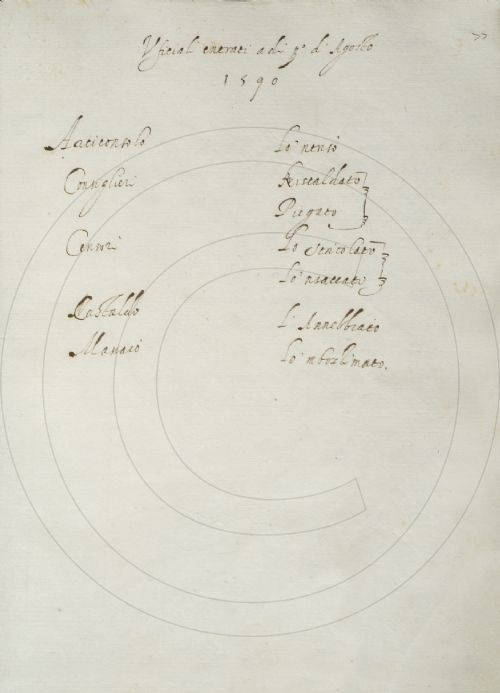 Vficiali entrati a dì p.º di Agosto
1590
Arciconsolo Lo 'nferi
Consiglieri Riscaldato
Piegato
Censori Lo Scricolato
Lo 'nsaccato
Castaldo L' Annebbiato
Massaio Lo 'mbozzimato.